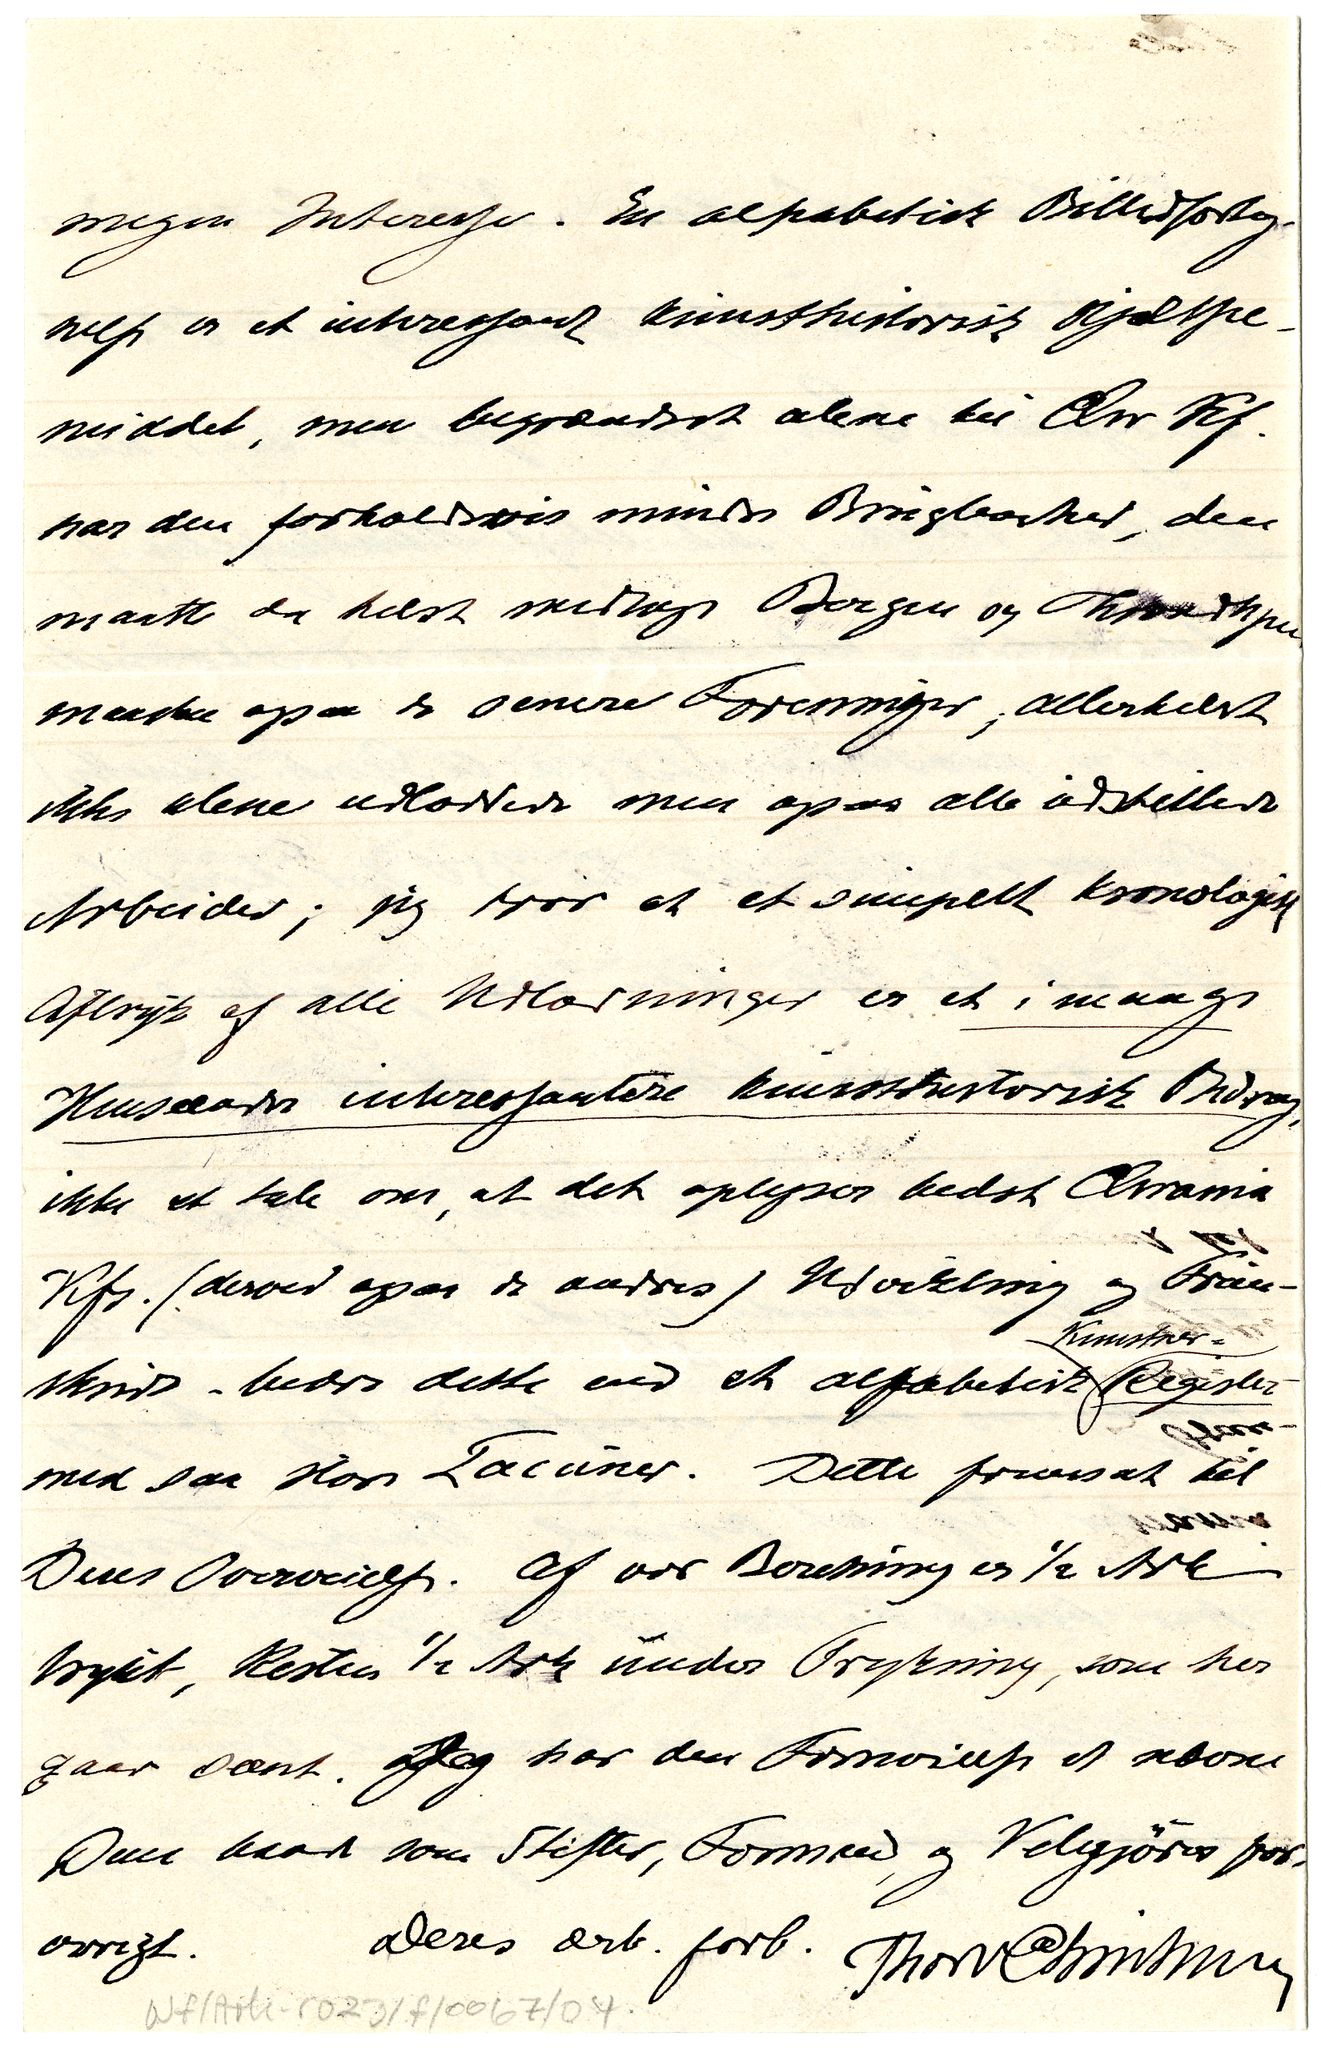 megen Interesse. En alphabetisk Billedforteg-
nelse er et interessant kunsthistorisk Hjælpe-
middel, men begrændset alene til Chr Kf.
har den forholdsvis mindre Brugbarhed, den
maatte da helst medtage Bergen og Throndhjem
maaske ogsaa de senere Foreninger, allerhelst
ikke alene udloddede men ogsaa alle udstillede
Arbeider; jeg tror at et simpelt kronologisk
Aftryk af alle Udlodninger er et i mange
Henseender interessantere kunsthistorisk Bidrag,
ikke at tale om, at det oplyser bedst Chrania
Kfs. (derved ogsaa de andres) Udvikling og Frem-
skridt - bedre dette end et alfabetisk Kunstner-
Register
med saa store Lacuner. Dette fremsat til
Deres Overveielse. Af vor Beretning er 1/2 Ark
trykt, Resten 1/2 Ark under Trykning, som her
gaar sent. Jeg har den Fornøielse at
Dem baade som Stifter, Formand, og Velgjörer
forövrigt. Deres ærb. forb.
Nf/Ark-1023/f/0067/04.